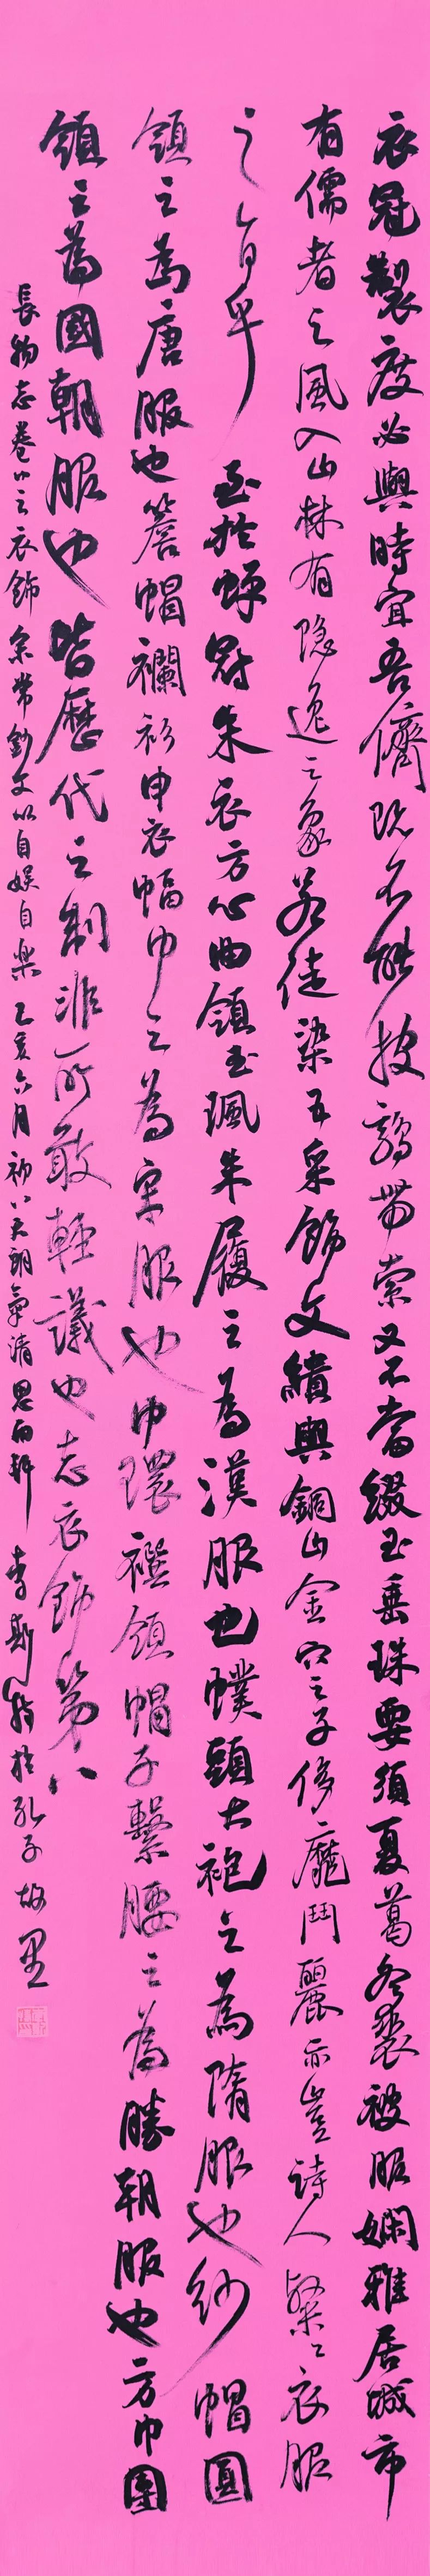 衣冠製度必與時宜吾儕既不能披鶉帶索又不當綴玉垂珠要須夏葛冬裘被服嫻雅居城市
有儒者之風入山林有隱逸之象若徒染五采飾文繢與銅山金穴之子侈靡鬥麗亦豈詩人粲粲衣服
之旨乎至於蟬冠朱衣方心曲領玉珮朱履之為漢服也幞頭大袍之為隋服也紗帽圓
領之為唐服也簷帽襴衫申衣幅巾之為宋服也巾環襈領帽子繫腰之為勝朝服也方巾團
領之為國朝服也皆歷代之制非所敢輕議也志衣飾第八
長物志卷八之衣飾余常鈔文以自娛自樂乙亥六月初八天朗氣清思雨軒李斯於孔子故里